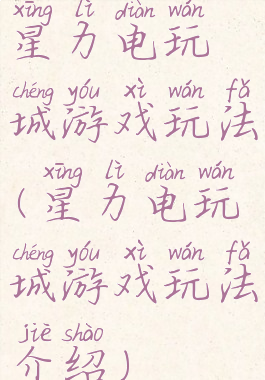 xīng lì diàn wán
星力电玩
chéng yóu xì wán fǎ
城游戏玩法
xīng lì diàn wán
(星力电玩
chéng yóu xì wán fǎ
城游戏玩法
jiè shào
介绍)